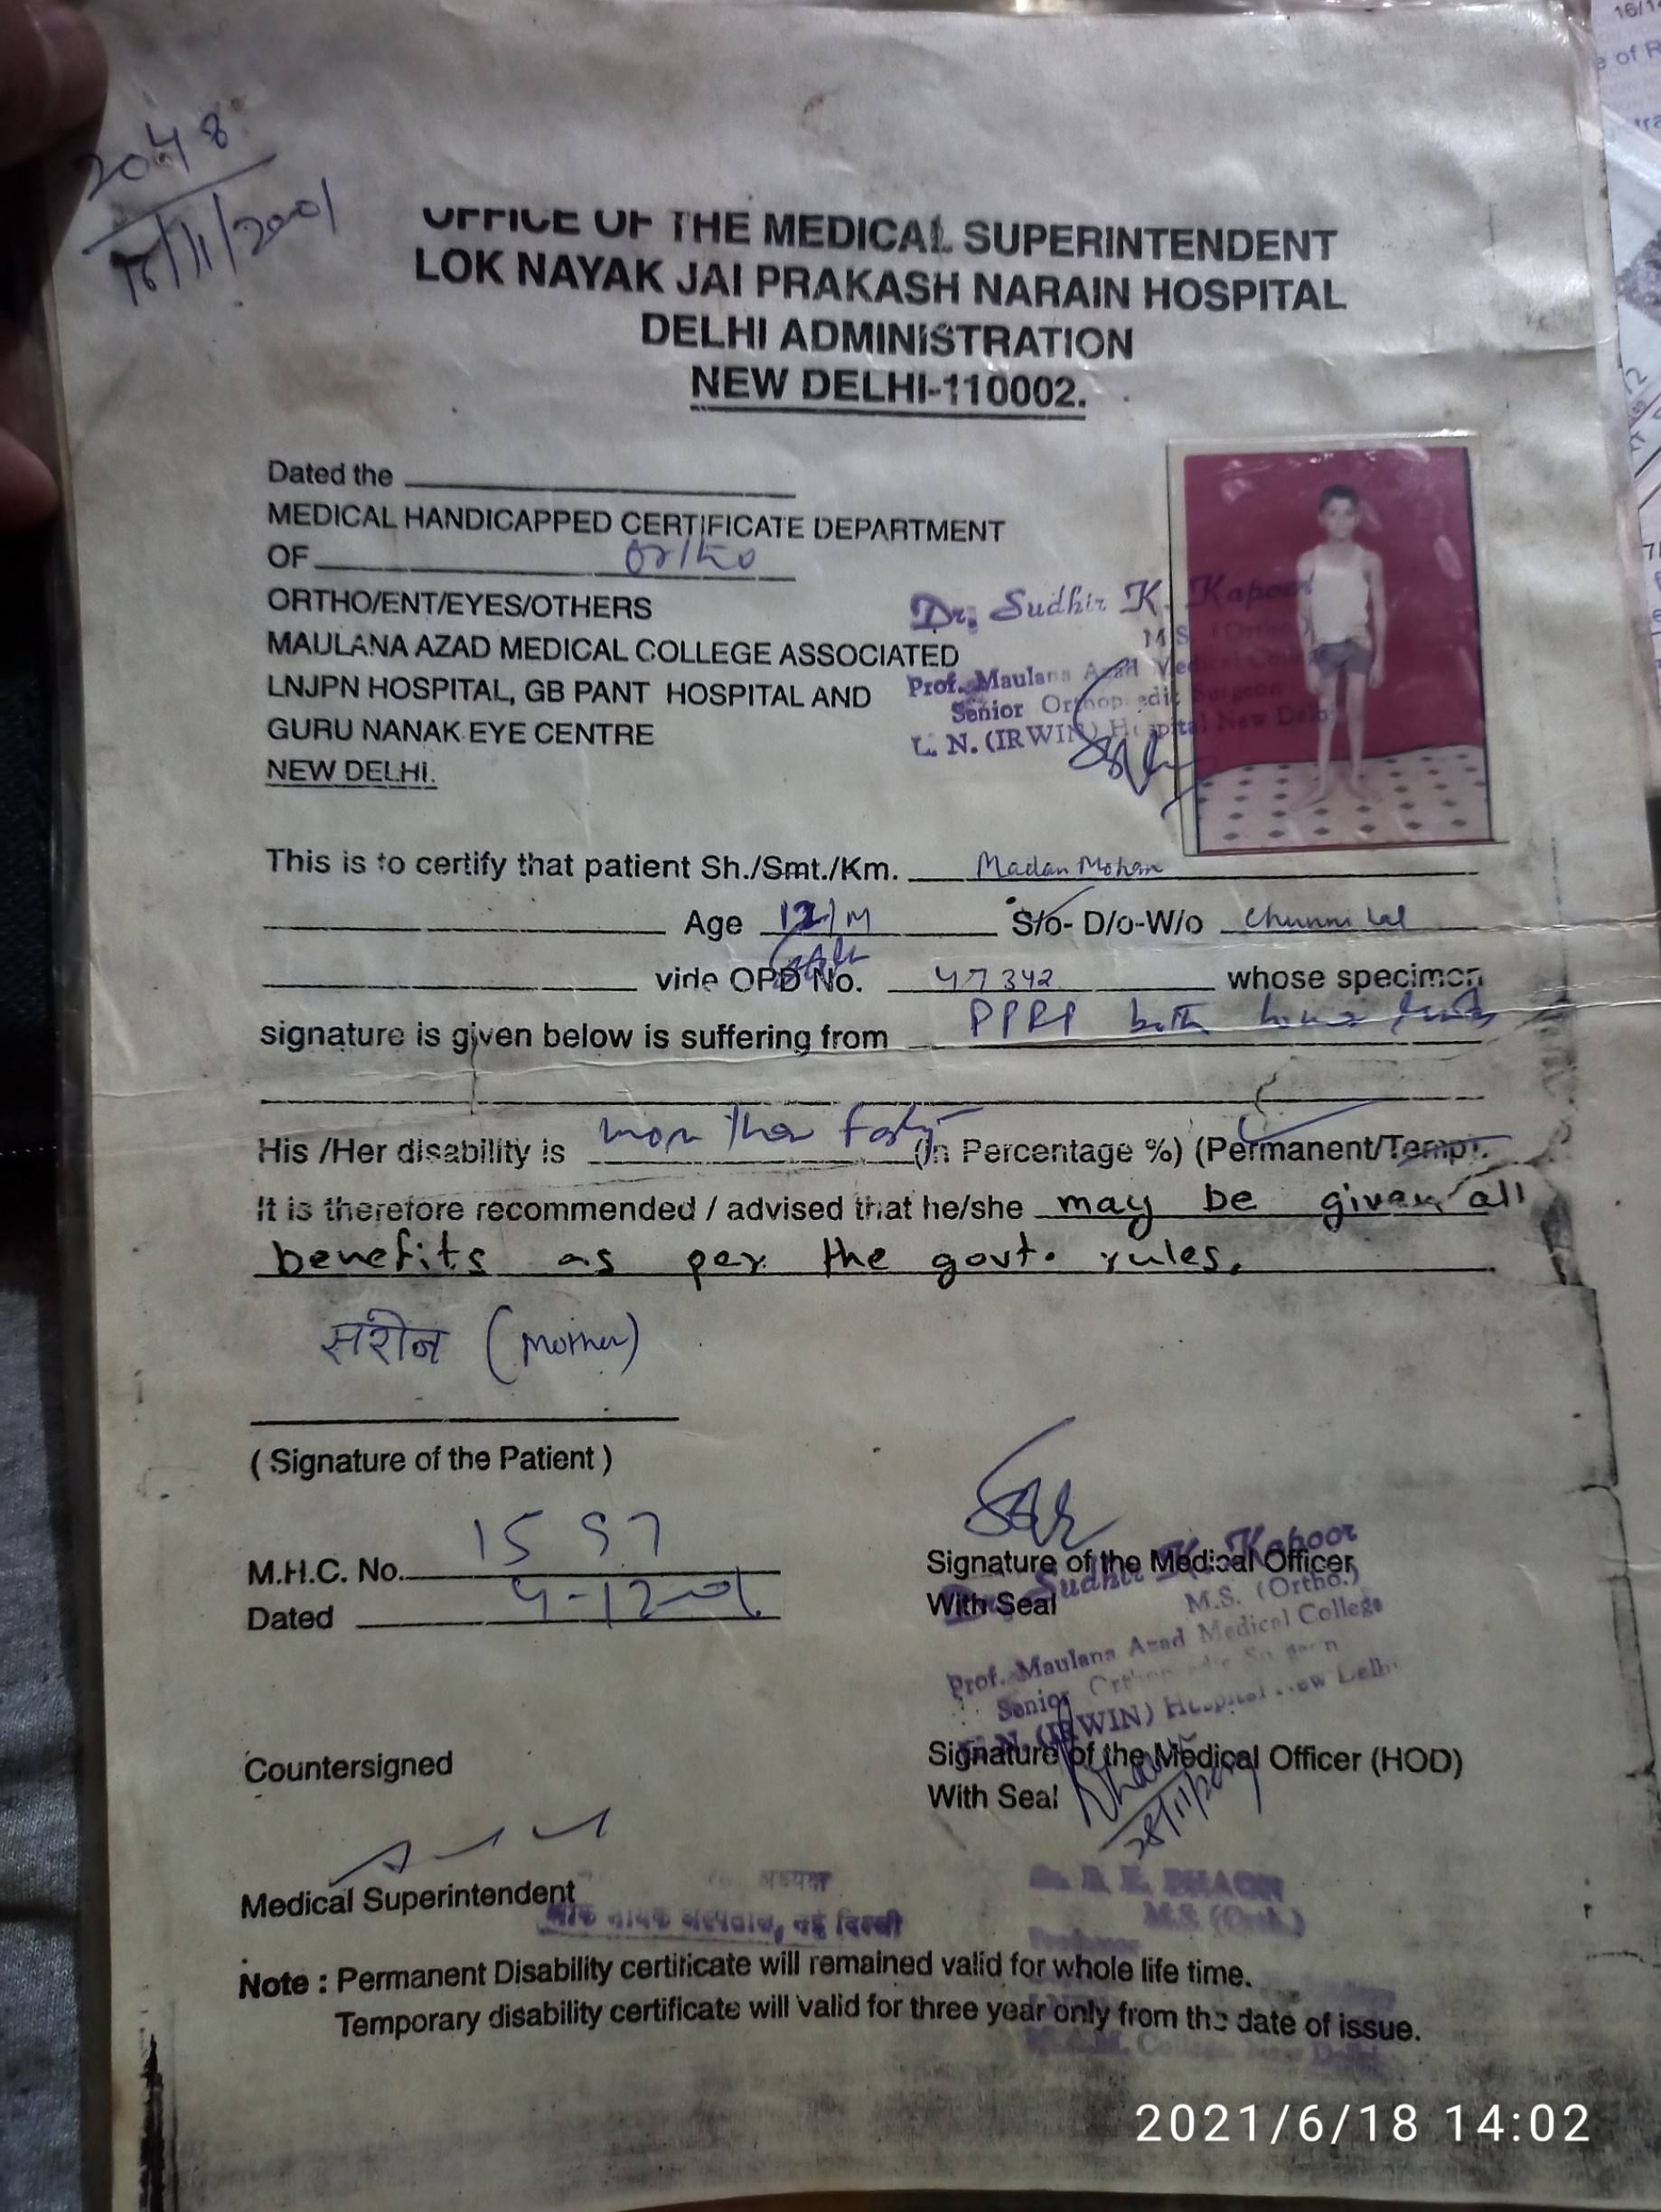 2048
/11/2001
OFFICE OF THE MEDICAL SUPERINTENDENT
LOK NAYAK JAI PRAKASH NARAIN HOSPITAL
DELHI ADMINISTRATION
NEW DELHI-110002.
Dated the
MEDICAL HANDICAPPED CERTIFICATE DEPARTMENT
OF Ortho
ORTHO/ENT/EYES/OTHERS
MAULANA AZAD MEDICAL COLLEGE ASSOCIATED
LNJPN HOSPITAL, GB PANT HOSPITAL AND
GURU NANAK EYE CENTRE
NEW DELHI.
Dr. Sudhir K. Kapoor
M.S. (Ortho.)
Prof. Maulana Azad Medical College
Senior Orthopaedic Surgeon
L. N. (IRWIN) Hospital New Delhi
This is to certify that patient Sh./Smt./Km. Madan Mohan
Age 12/M S/o- D/o-W/o Chunni Lal
vide OPD No. 47342 whose specimen
signature is given below is suffering from PPRP both lower limbs
His /Her disability is more than forty (In Percentage %) (Permanent/Temp).
It is therefore recommended / advised that he/she may be given all
benefits as per the govt. rules.
सरोज (Mother)
( Signature of the Patient )
M.H.C. No. 1597
Dated 4-12-01
Signature of the Medical Officer
With Seal
Dr. Sudhir K. Kapoor
M.S. (Ortho.)
Prof. Maulana Azad Medical College
Senior Orthopaedic Surgeon
L. N. (IRWIN) Hospital New Delhi
Countersigned
Signature of the Medical Officer (HOD)
With Seal
28/11/2001
Medical Superintendent
लोक नायक अस्पताल, नई दिल्ली
M.S. (Orth.)
Professor
M.A.M. College, New Delhi
Note : Permanent Disability certificate will remained valid for whole life time.
Temporary disability certificate will valid for three year only from the date of issue.
2021/6/18 14:02